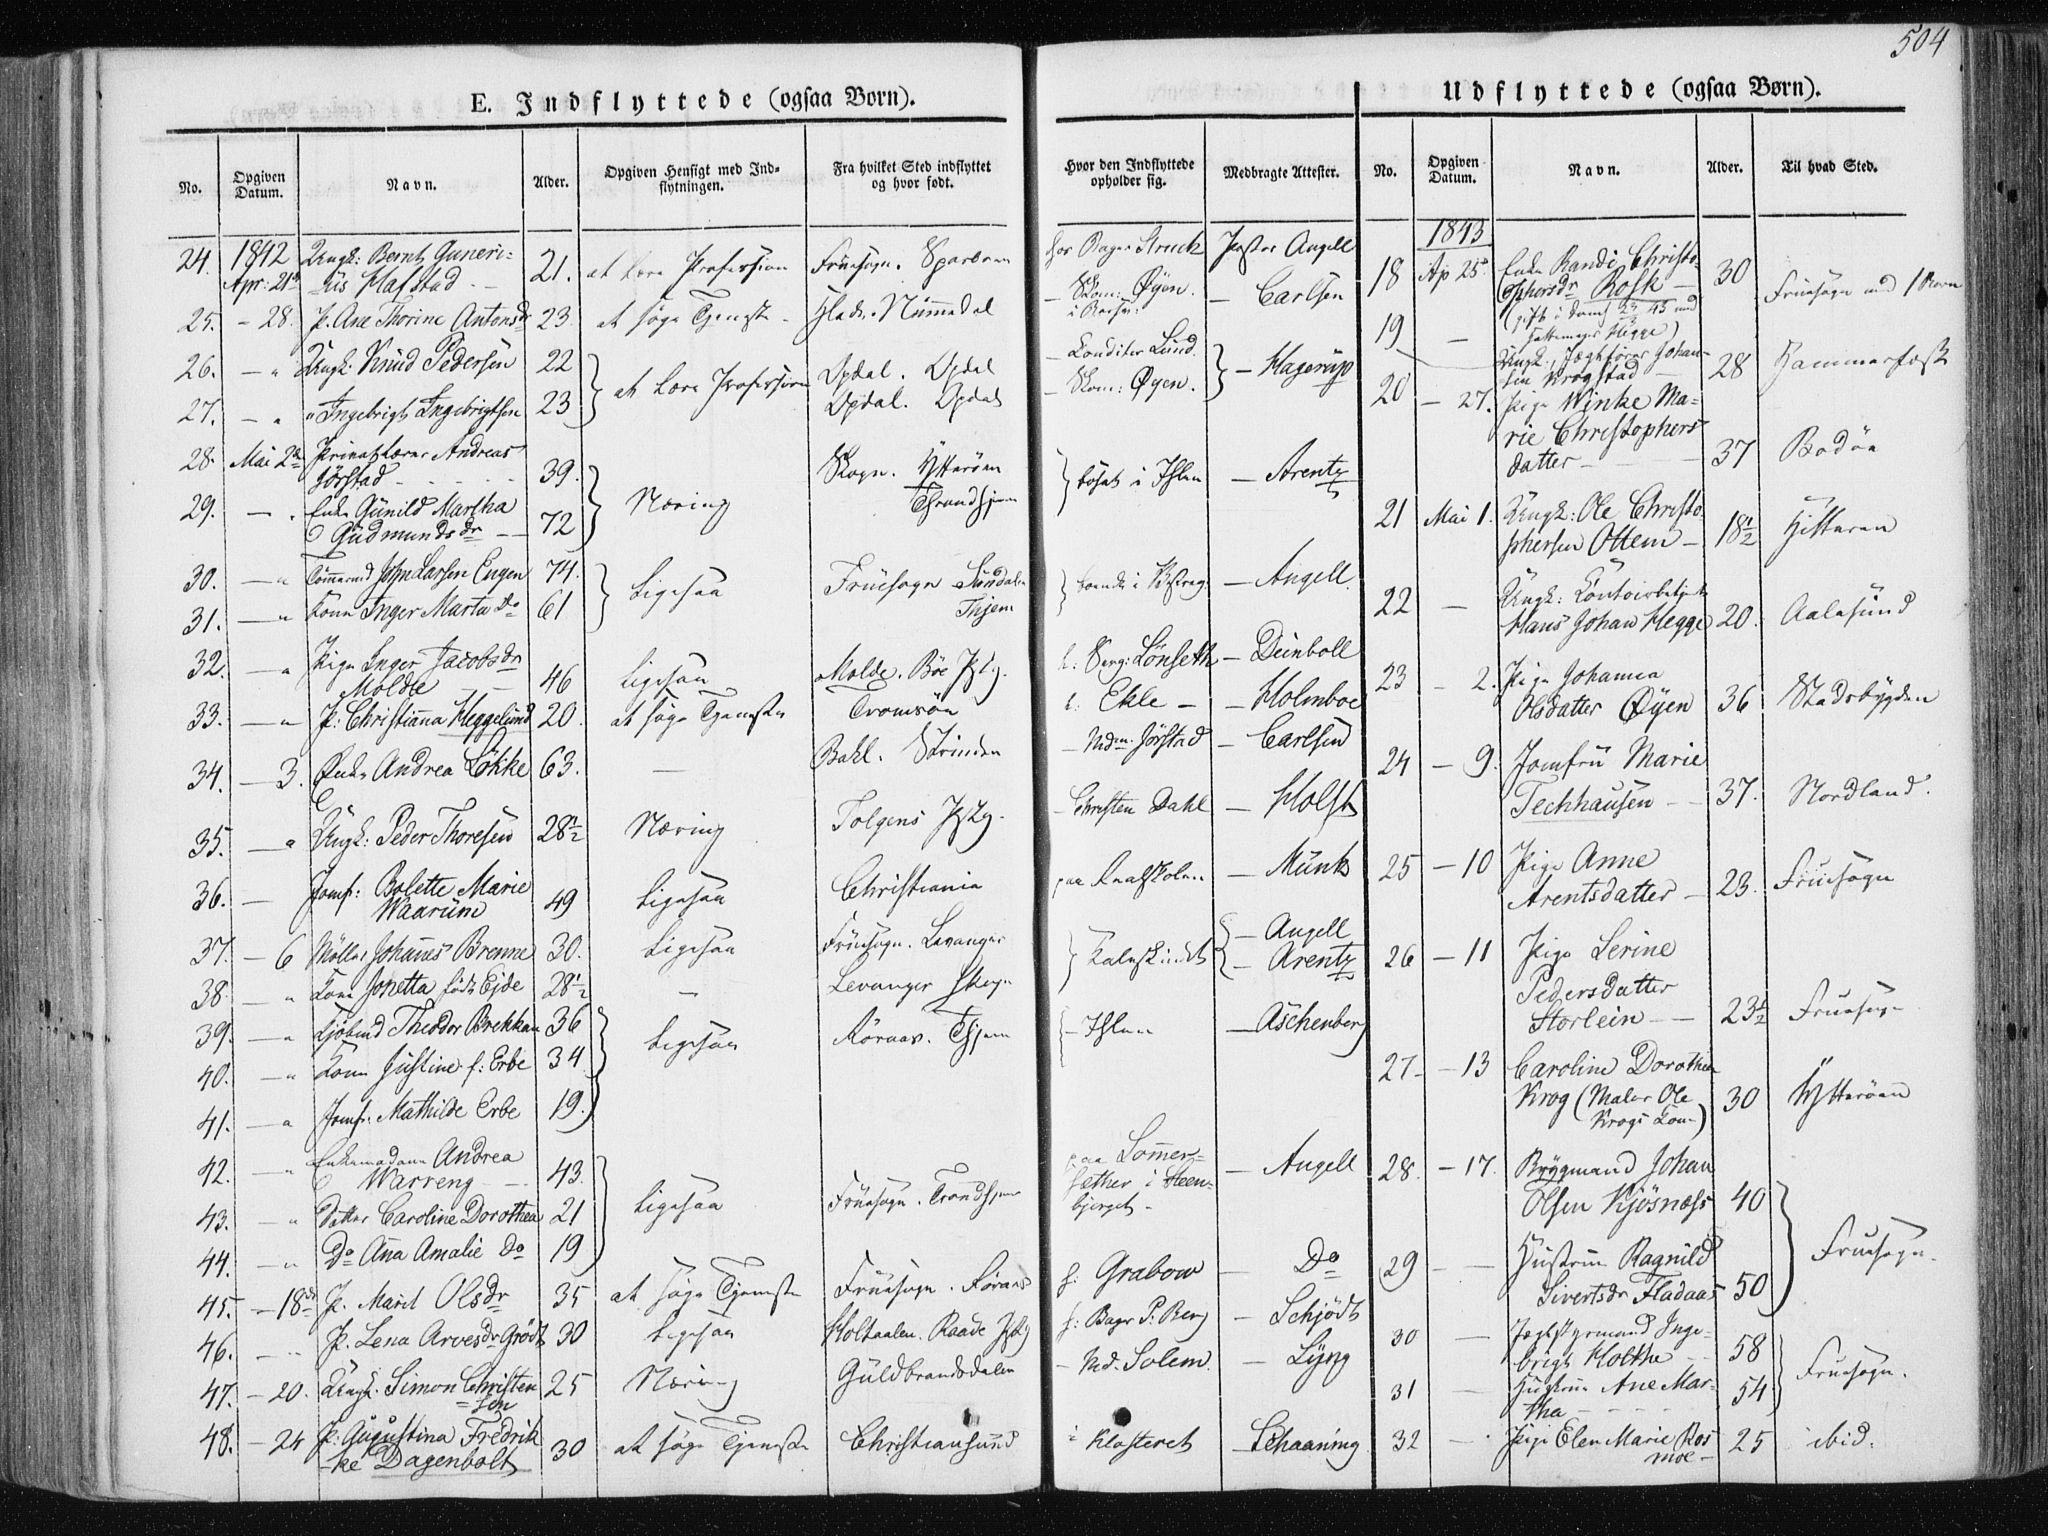 504
E. Indflyttede (ogsaa Børn).
No. Opgiven Datum. Navn. Alder. Opgiven Hensigt med Indflytningen. Fra hvilket Sted indflyttet og hvor født. Hvor den Indflyttede opholder sig. Medbragte Attester.
24. 1842 Apr: 21de Ungk: Bernt Guneri-
us Hafstad 21. at lære Profession Fruesogn. Sparboen hos Bager Struck Angell
25. - 28. P. Ane Thorine Antonsdr 23 at søge Tjeneste Nummedal - Skom: Øyen - Carlsen
26. - " Ungk: Knud Pedersen 22 at lære Profession Opdal. Opdal - Conditor Lund - Hagerup
27. - " " Ingebrigt Ingebrigtsen 23 Opdal. Opdal - Skom: Øyen.
28. Mai 2den Privatlærer Andreas
Jørstad 39. Næring Skogn. Ytterøen bosat i Ihlen - Arentz
29. - " Enke Gunild Martha
Gudmundsdr 72 Throndhjem
30. - " Tømmermd John Larsen Engen 74. Ligesaa Fruesogn Sundalen - Angell
31. - " Kone Inger Marta Do 61 Thjem
32. - " Pige Inger Jacobsdr
Molde 46 Ligesaa Molde. Böe h: Serg: Lönseth - Deinboll
33. - " P: Christianna Heggelund 20. at søge Tjeneste Tromsöe h: Ekle - Holmboe
34. - 3. Enke Andrea Løkke 63. - Bakl. Strinden - Mdm. Jørstad - Carlsen
35. - " Ungk: Peder Thoresen 28½ Næring Tolgens - Christen Dahl - Holst
36. - Jomf: Bolette Marie
Waarum 49 Ligesaa Christiania paa Realskolen - Munk
37. - 6 Møller Johannes Brenne 30. Ligesaa Fruesogn. Levanger Kalvskindet - Angell
38. - " Kone Jonetta født Ejde 28½ - Levanger Skogn - Arentz
39. - " Kjøbmd Theodor Brekkan 36 Ligesaa Røraas. Thjem - Ihlen - Aschenberg
40. - " Kone Justine f: Erbe 34
41. - " Jomf: Mathilde Erbe 19.
42. - " Enkemadame Andrea
Warreng 43. Ligesaa Fruesogn. Trondhjem paa Sommer-
sæther i Steen-
bjerget - - Angell
43. - " Datter Caroline Dorothea 21
44. - " Do Anna Amalie Do 19
45. - 18de P. Marit Olsdr 35 at søge Tjeneste Fruesogn. Røraas h: Grabow - Do
46. - " P. Lena Arvesdr Grödt 30 Ligesaa Holtaalen. Raade h: Bager P: Berg - Schjødt
47. - 20. Ungk. Simon Christen-
sen 25 Næring Guldbrandsdalen - Md. Solem. - Lyng
48. - 24 P: Augustina Fredrik-
ke Dagenbolt 30 at søge Tjeneste Christiansund i Klosteret - Schaaning
Udflyttede (ogsaa Børn).
No. Opgiven Datum. Navn. Alder. Til hvad Sted.
1843
18 Ap 25de Enke Randi Christo-
phersdr Rosk 30 Fruesogn med 1 Barn
19 - Ungk. Jægtfører Johan-
sen Krogstad 28 Hammerfest
20 - 27. Pige Winke Ma-
rie Christophers-
datter 37 Bodøe
21 Mai 1. Ungk: Ole Christo-
phersen Ottem - 18½ Hitteren
22 - Ungk: Contoirbetjent
Hans Johan Hegge 20. Aalesund
23 - 2. Pige Johanna
Olsdatter Øyen 36 Stadsbygden
24 - 9. Jomfru Marie
Techhausen 37. Nordland.
25 - 10 Pige Anne
Arentsdatter 23. Fruesogn
26 - 11 Pige Serine
Pedersdatter
Storlein 23½ Fruesogn
27 - 13 Caroline Dorothea
Krog (Maler Ole
Krogs Kone) 30 Ytterøen
28. - 17. Brygmand Johan
Olsen Kjösnæss 40 Fruesogn.
29 - Hustrue Ragnild
Sivertsdr Fladaas 50
30 - Jægtstyrmand Inge-
brigt Holthe 58 Fruesogn.
31 - Hustrue Ane Mar-
tha 54
32 - Pige Elen Marie Ros-
moe 25 ibid.